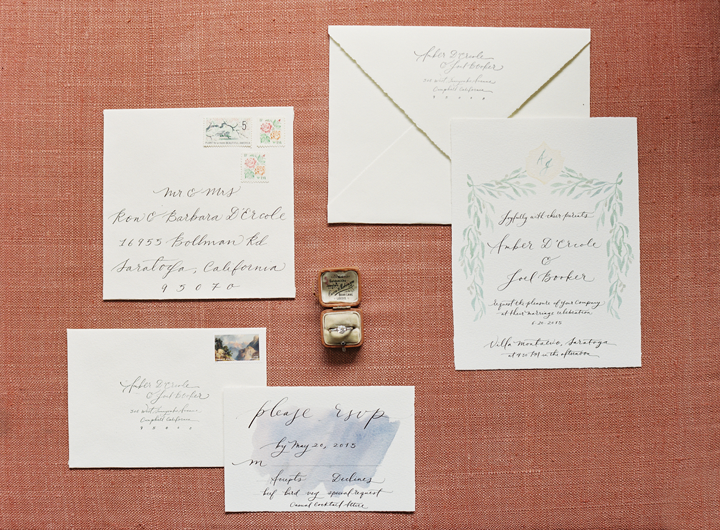 Amber D'Ercole
& Joel Booker
Campbell California
5
Mr & Mrs
Ron & Barbara D'Ercole
16955 Bollman Rd
Saratoga, California
95070
Joyfully with their parents
Amber D'Ercole
&
Joel Booker
request the pleasure of your company
at their marriage celebration
6·20·2015
Villa Montalvo, Saratoga
in the afternoon
Amber D'Ercole
& Joel Booker
Campbell California
please rsvp
by May 20, 2015
M
Accepts Declines
beef bird veg special request
Casual Cocktail Attire